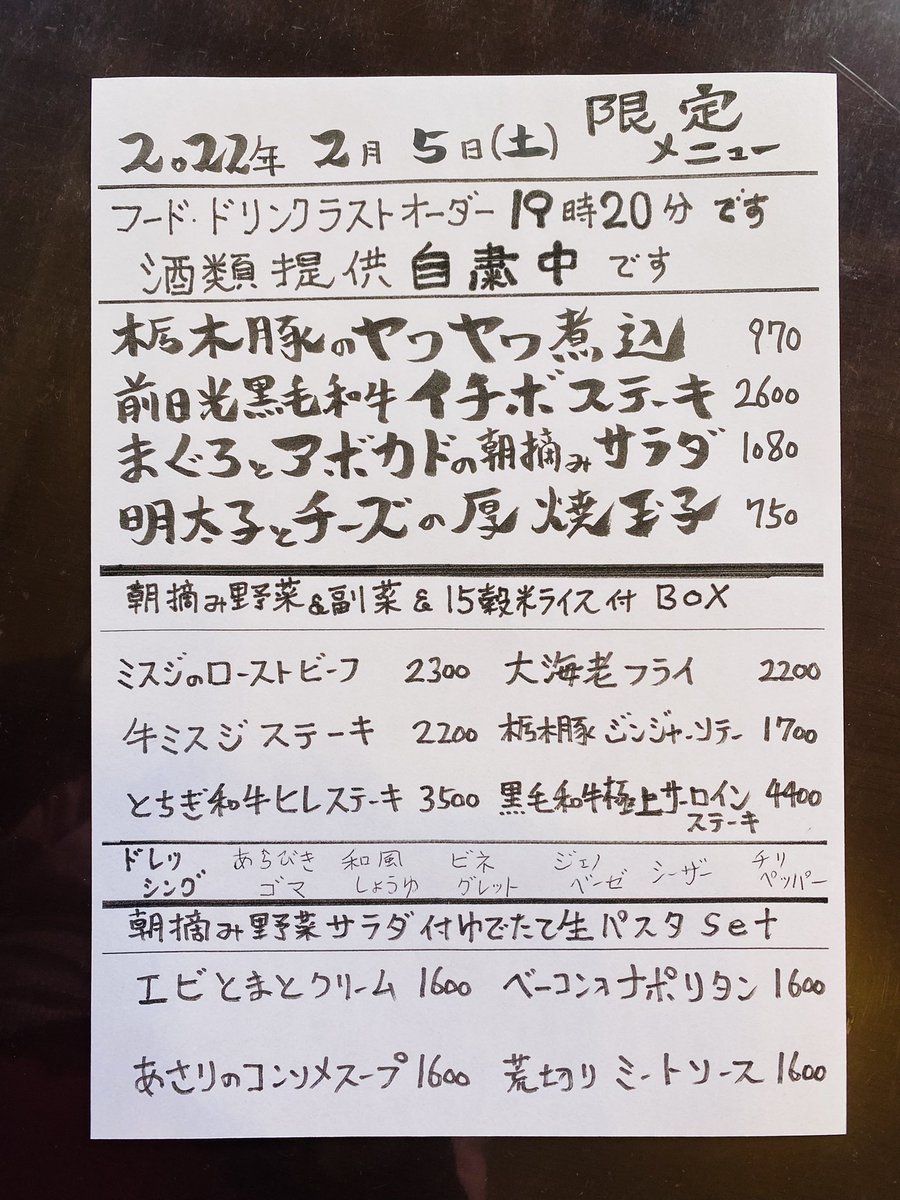 2022年 2月 5日(土) 限定メニュー
フード・ドリンクラストオーダー 19時20分 です
酒類提供 自粛中 です
栃木豚のヤワヤワ煮込 970
前日光黒毛和牛イチボステーキ 2600
まぐろとアボカドの朝摘みサラダ 1080
明太子とチーズの厚焼玉子 750
朝摘み野菜&副菜&15穀米ライス付 BOX
ミスジのローストビーフ 2300 大海老フライ 2200
牛ミスジステーキ 2200 栃木豚ジンジャーソテー 1700
とちぎ和牛ヒレステーキ 3500 黒毛和牛極上サーロインステーキ 4400
ドレッシング あらびきゴマ 和風しょうゆ ビネグレット ジェノベーゼ シーザー チリペッパー
朝摘み野菜サラダ付ゆでたて生パスタ Set
エビとまとクリーム 1600 ベーコンオナポリタン 1600
あさりのコンソメスープ 1600 荒切りミートソース 1600